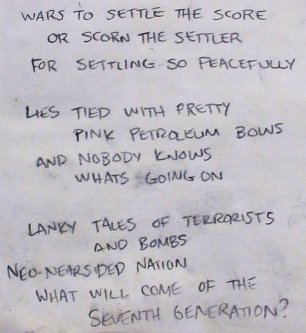 WARS TO SETTLE THE SCORE
OR SCORN THE SETTLER
FOR SETTLING SO PEACEFULLY
LIES TIED WITH PRETTY
PINK PETROLEUM BOWS
AND NOBODY KNOWS
WHATS GOING ON
LANKY TALES OF TERRORISTS
AND BOMBS
NEO-NEARSIDED NATION
WHAT WILL COME OF THE
SEVENTH GENERATION?